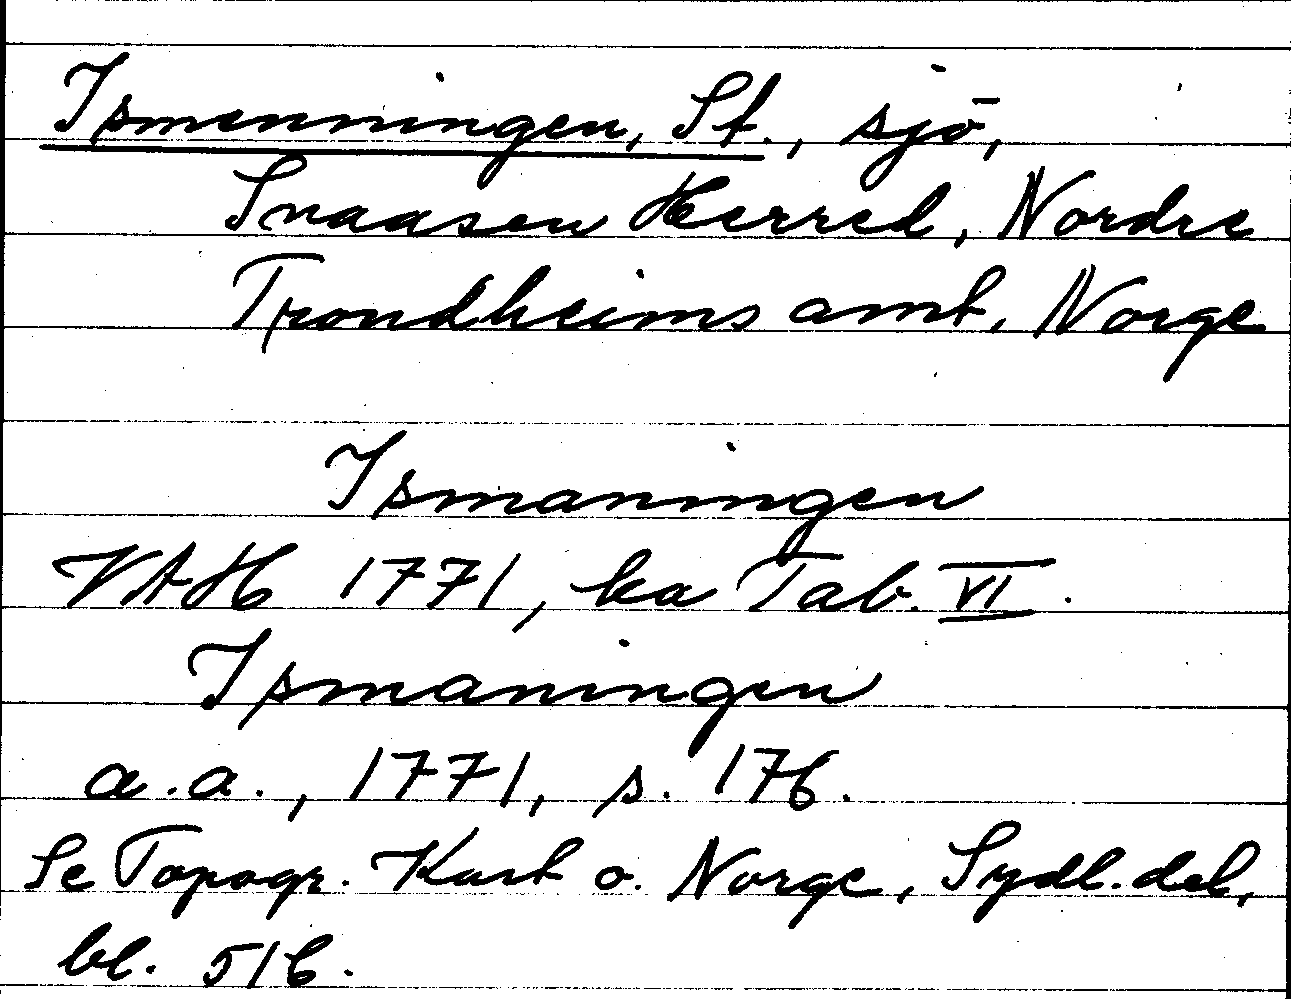 Ismenningen, St., sjö,
Snaasen Herred, Nordre
Trondheims amt, Norge
Ismaningen
VAH 1771, ka Tab. VI.
Ismaningen
a.a., 1771, s. 176.
Se Topogr. Kart o. Norge, Sydl. del,
bl. 51B.